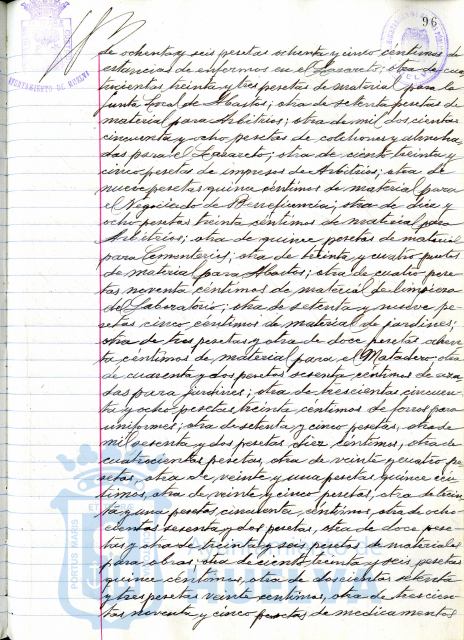 96
AYUNTAMIENTO DE
de ochenta y seis pesetas ochenta y cinco centimos de
estancias de enfermos en el Lazareto; otra de cua
trocientas treinta y tres pesetas de material para la
Junta Local de Abastos; otra de setenta pesetas de
material para Arbitrios; otra de mil doscientas
cincuenta y ocho pesetas de colchones y almoha
das para el Lazareto; otra de ciento treinta y
cinco pesetas de impresos de Arbitrios; otra de
nueve pesetas quince centimos de material para
el Negociado de Beneficencia; otra de diez y
ocho pesetas treinta centimos de material para
Arbitrios; otra de quince pesetas de material
para Cementerios; otra de treinta y cuatro pesetas
de material para Abastos; otra de cuatro pese
tas noventa centimos de material de limpieza
del Laboratorio; otra de setenta y nueve pe-
setas cinco centimos de material de jardines;
otra de tres pesetas y otra de doce pesetas ochen
ta centimos de material para el Matadero, otra
de cuarenta y dos pesetas sesenta centimos de aza
das para jardines; otra de trescientas cincuen
ta y ocho pesetas treinta centimos de forros para
uniformes; otra de setenta y cinco pesetas, otra de
mil sesenta y dos pesetas diez centimos, otra de
cuatrocientas pesetas, otra de veinte y cuatro pe
setas, otra de veinte y una pesetas quince cen
timos, otra de veinte y cinco pesetas, otra de trein
ta y una pesetas cincuenta centimos, otra de ocho
cientas sesenta y dos pesetas, otra de doce pese
tas y otra de treinta y seis pesetas de materiales
para obras; otra de ciento treinta y seis pesetas
quince centimos, otra de doscientas setenta
y tres pesetas veinte centimos, otra de trescien
tas noventa y cinco pesetas de medicamentos
PORTUS MARIS
Ayuntamiento de